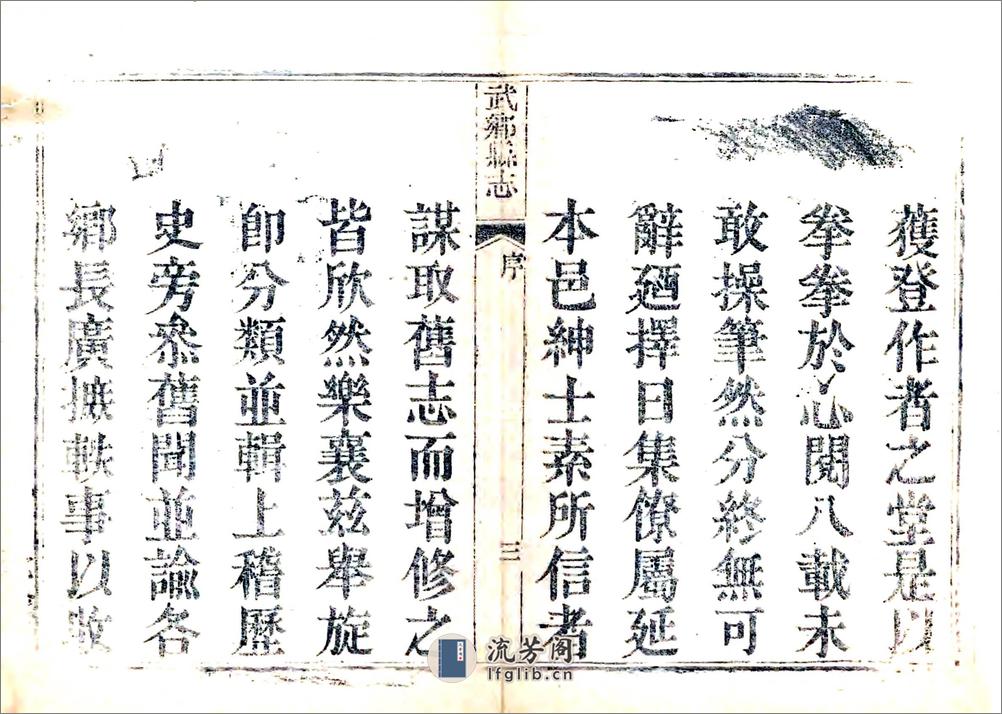 獲登作者之堂是以
拳拳於心閱八載未
敢操筆然分終無可
辭廼擇日集僚屬延
本邑紳士素所信者
武鄉縣志
序
三
謀取舊志而增修之
皆欣然樂襄茲舉旋
卽分類並輯上稽歷
史旁叅舊聞並諭各
鄉長廣摭軼事以
流芳阁
lfglib.cn